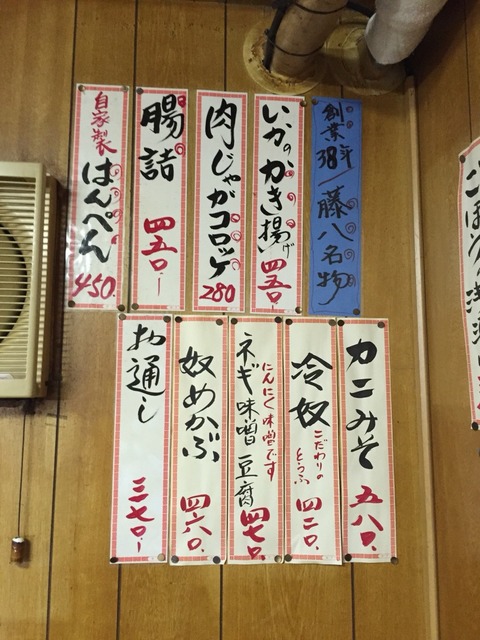 創業38年/藤八名物
いかのかき揚げ 四五〇.
肉じゃがコロッケ 280
腸詰 四五〇.
自家製 はんぺん 450.
カニみそ 五八〇.
冷奴 こだわりのとうふ 四二〇.
ネギ味噌豆腐 にんにく味噌です 四七〇.
奴めかぶ 四六〇.
お通し 三七〇.